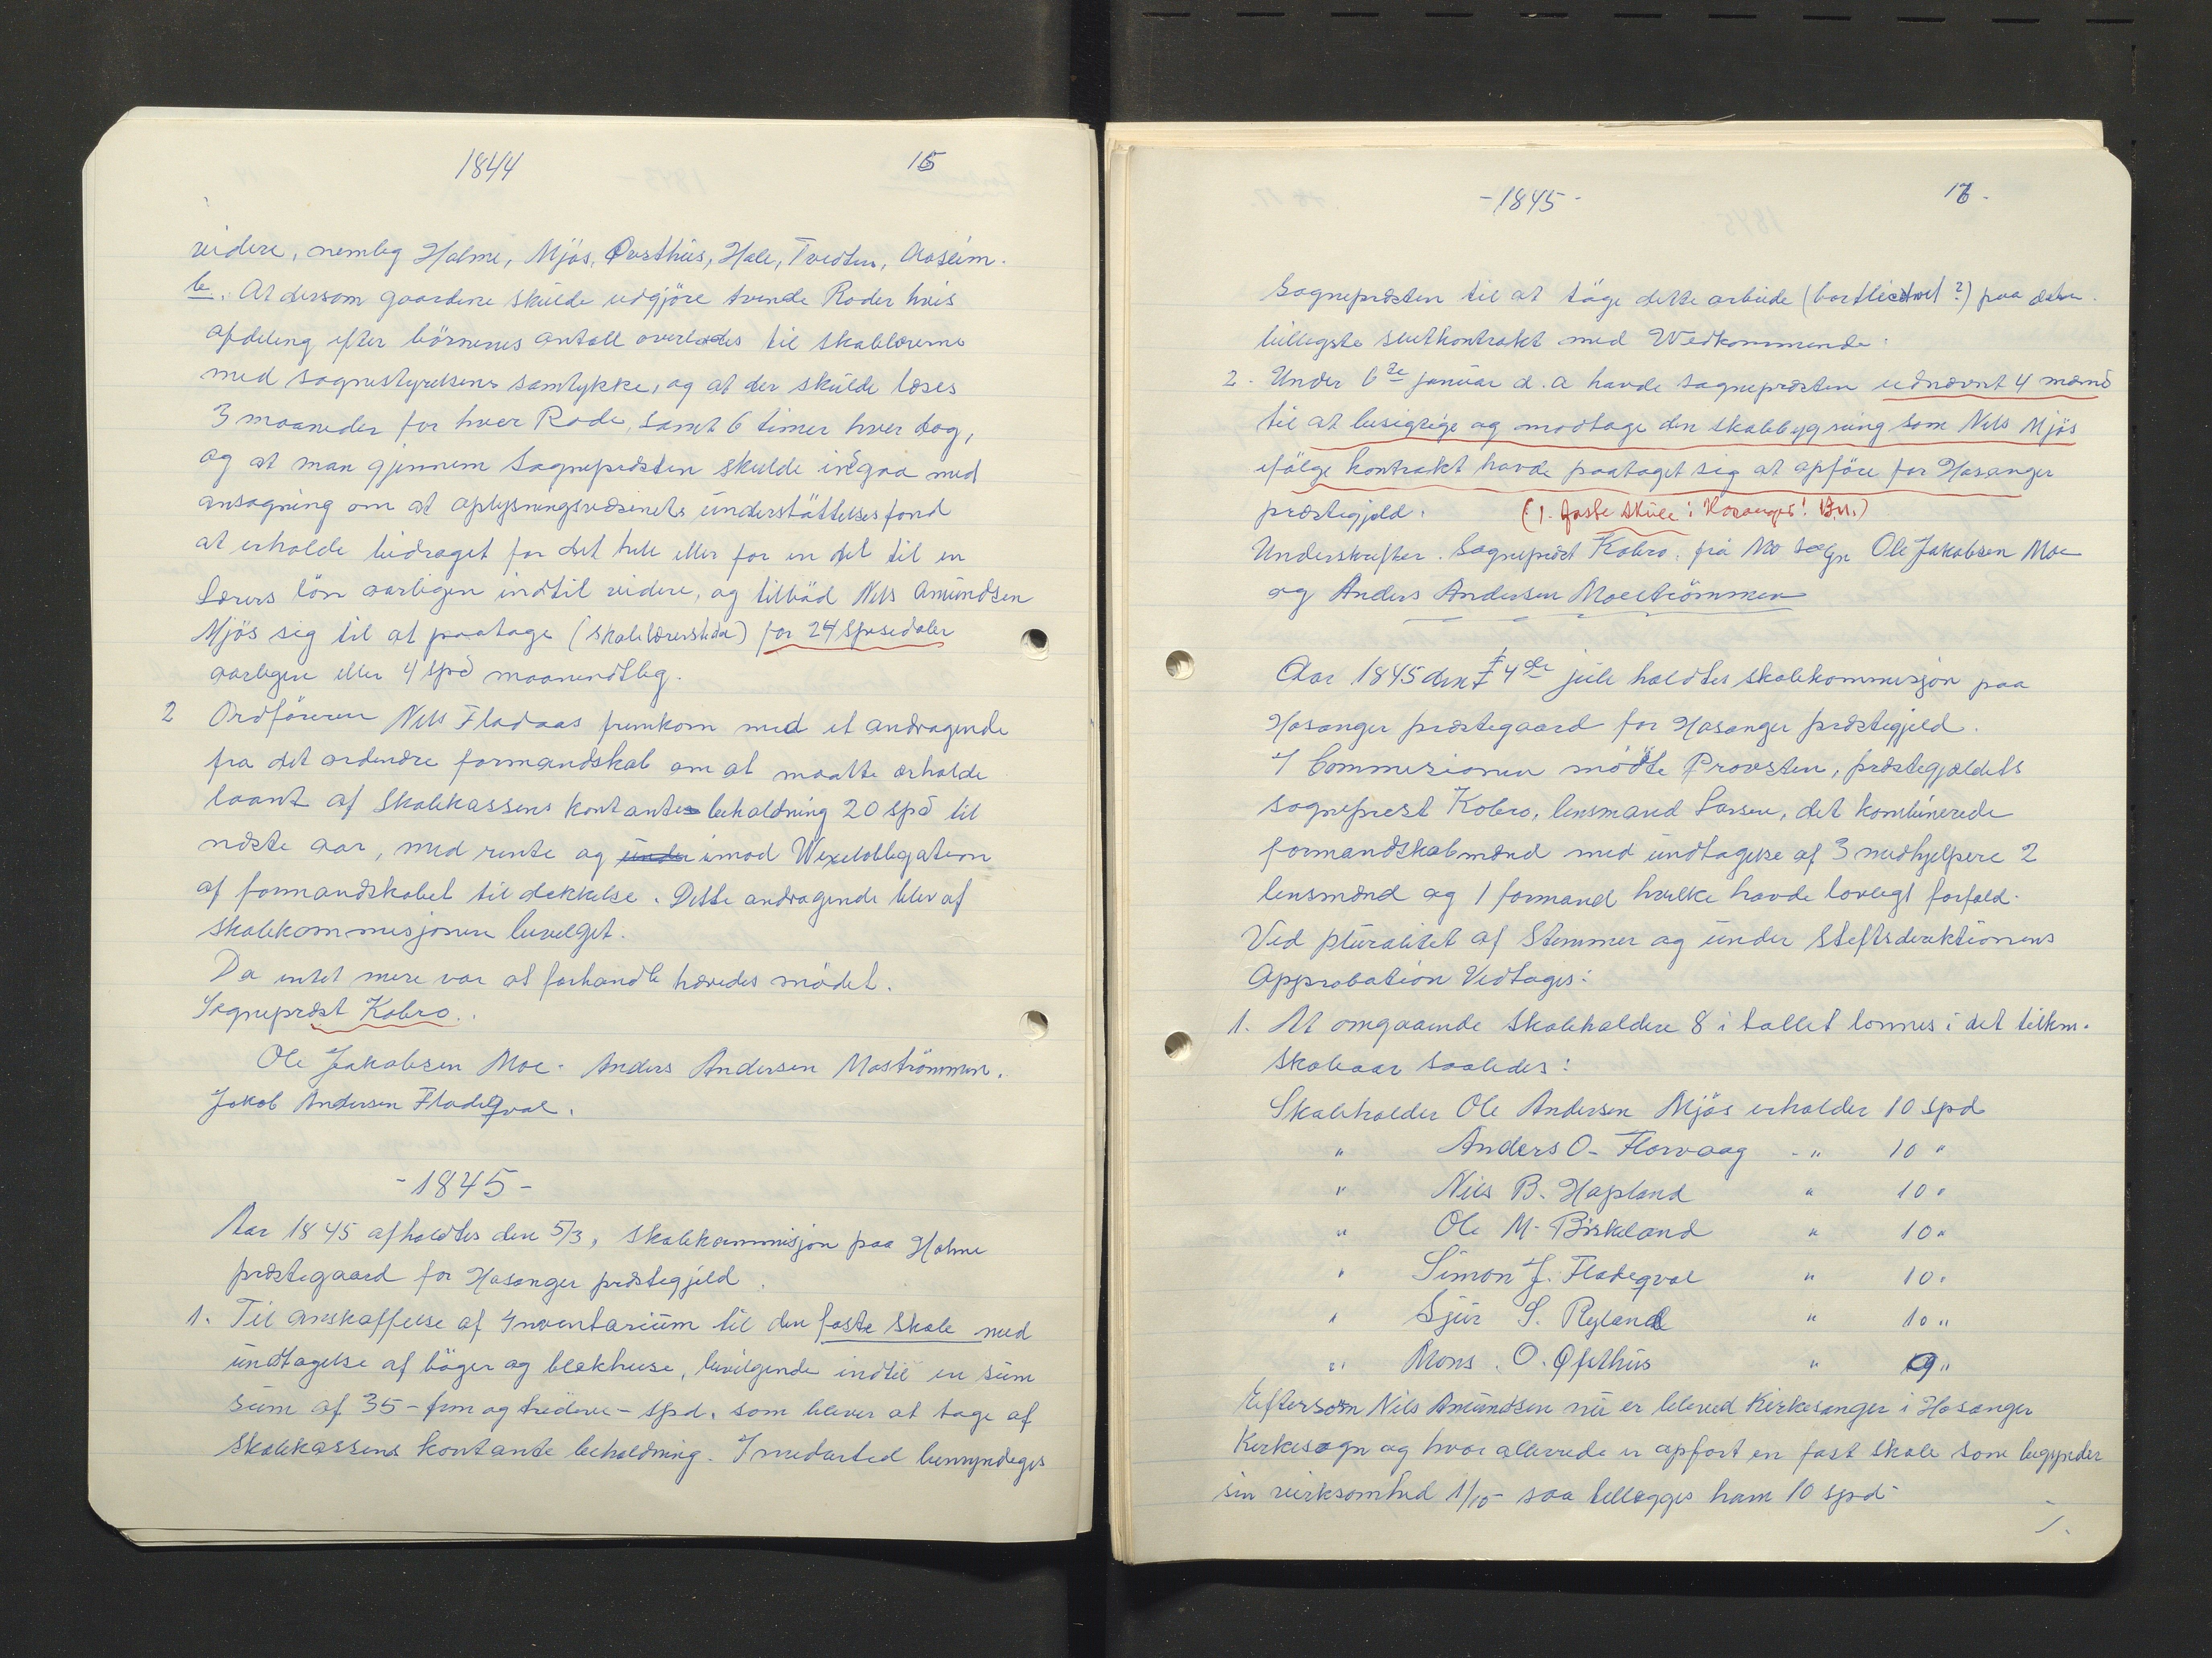 1844
15
videre, nemlig Holme, Mjös, Øvsthus, Hole, Tvedten, Aaseim.
b. At dersom gaardene skulde udgjöre tvende Roder hvis
afdeling efter börnenes antall overlades til skolelærerne
med sognestyrelsens samtykke, og at der skulde læses
3 maaneder for hver Rode, samt 6 timer hver dag,
og at man gjennem Sognepræsten skulde indgaa med
ansøgning om at oplysningsvæsenets understöttelsesfond
at erholde bidraget for det hele eller for en del til en
Lærers lön aarligen indtil videre, og tilböd Nils Amundsen
Mjös sig til at paatage (skolelærerstida) for 24 spesidaler
aarligen eller 4 spd maanendtlig.
2 Ordföreren Nils Fladaas fremkom med et andragende
fra det ordendre formandskab om at maatte erholde
laant af skolekassens kontante beholdning 20 spd til
næste aar, med rente og under imod Wexelobligation
af formandskabet til dekkelse. Dette andragende blev af
skolekommisjonen bevelget.
Da intet mere var at forhandle hævedes mödet.
Sognepræst Kobro..
Ole Jakobsen Moe. Anders Andersen Moströmmen.
Jakob Andersen Fladeqval.
-1845-
Aar 1845 afholdtes den 5/3, skolekommisjon paa Holme
præstegaard for Hosanger præstegjeld.
1. Til anskaffelse af Inventarium til den faste skole med
undtagelse af böger og blekhuse, bevilgende indtil en sum
sum af 35 - fem og tredeve - spd. som bliver at tage af
skolekassens kontante beholdning. I medarted bemyndeges
-1845-
16.
Sognepræsten til at tage dette arbeide (bortlicitret?) paa
billigste sluttkontrakt med Wedkommende.
2. Under 6te januar d.a havde sognepræsten udnævnt 4 mænd
til at besigtige og modtage den skolebygning som Nils Mjös
ifölge kontrakt havde paataget sig at opföre for Hosanger
præstegjeld. (1. faste skule i Hosanger! B.M.)
Underskrifter. Sognepræst Kobro. frå Mo sogn Ole Jakobsen Moe
og Anders Andersen Moeströmmen
Aar 1845 den 4de juli holdtes skolekommisjon paa
Hosanger præstegaard for Hosanger præstegjeld.
I Commisionen mödte Provsten, præstegjældets
sogneprest Kobro, lensmand Larsen, det kombinerede
formandskabmænd med undtagelse af 3 medhjelpere 2
lensmænd og 1 formand hvilke havde lovligt forfald.
Ved pluralitet af Stemmer og under Stiftsdirektionens
Approbation Vedtages:
1. At omgaaende Skoleholdere 8 i tallet lønnes i det tilkm.
skoleaar saaledes:
Skoleholder Ole Andersen Mjös erholder 10 spd
" Anders O. Florvaag -" 10 "
" Nils B. Hopland " 10 "
" Ole M. Birkeland " 10 "
" Simon J. Fladeqval " 10 "
" Sjur S. Ryland " 10 "
" Mons. O. Øfsthus " 9 "
Eftersom Nils Amundsen nu er bleved Kirkesanger i Hosanger
Kirkesogn og hvor allerede er opført en fast skole som begynder
sin virksomhed 1/10 saa tillegges ham 10 spd